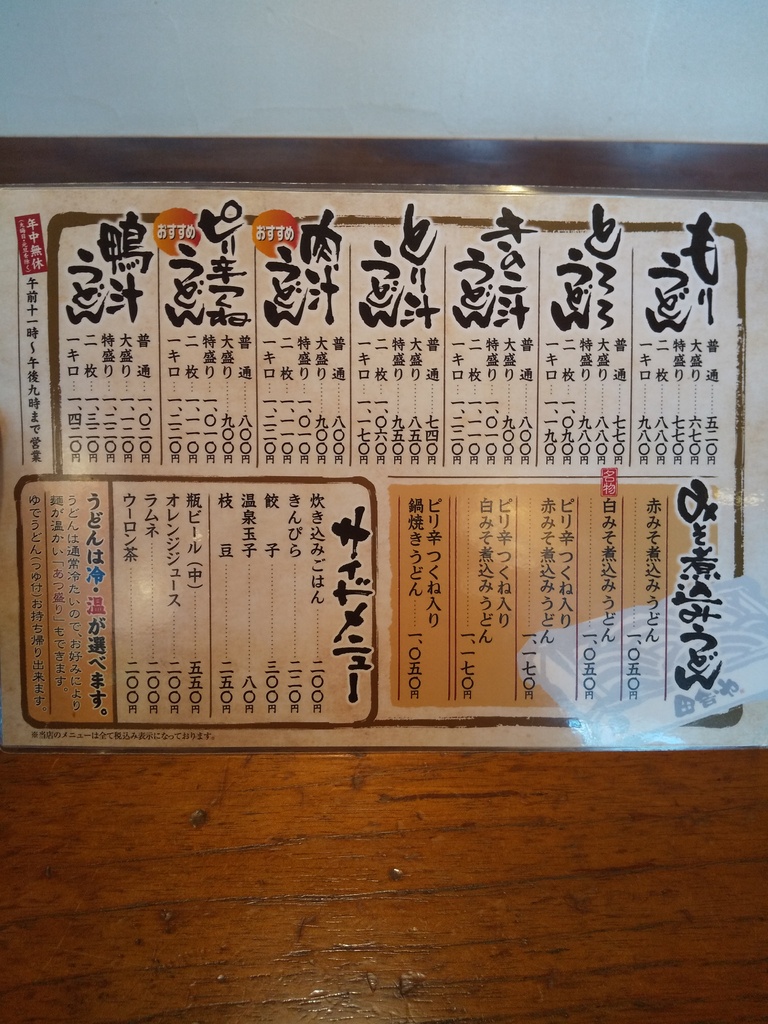 もりうどん
普通 五二〇円
大盛り 六七〇円
特盛り 七七〇円
二枚 八八〇円
一キロ 九八〇円
とろろうどん
普通 七七〇円
大盛り 八八〇円
特盛り
二枚 一、〇九〇円
一キロ 一、一九〇円
きのこ汁うどん
普通 八〇〇円
大盛り 九〇〇円
特盛り 一、〇一〇円
二枚 一、一一〇円
一キロ 一、二二〇円
とり汁うどん
普通 七四〇円
大盛り 八五〇円
特盛り 九五〇円
二枚 一、〇六〇円
一キロ 一、一七〇円
おすすめ
肉汁うどん
普通 八〇〇円
大盛り 九〇〇円
特盛り 一、〇一〇円
二枚 一、一一〇円
一キロ 一、二二〇円
おすすめ
ピリ辛つくねうどん
普通 八〇〇円
大盛り 九〇〇円
特盛り 一、〇一〇円
二枚 一、一一〇円
一キロ 一、二二〇円
鴨汁うどん
普通 一、〇二〇円
大盛り 一、一二〇円
特盛り 一、二二〇円
二枚 一、三一〇円
一キロ 一、四二〇円
年中無休
午前十一時〜午後九時まで営業
みそ煮込みうどん
赤みそ煮込みうどん 一、〇五〇円
名物
白みそ煮込みうどん 一、〇五〇円
ピリ辛つくね入り
赤みそ煮込みうどん 一、一七〇円
ピリ辛つくね入り
白みそ煮込みうどん 一、一七〇円
ピリ辛つくね入り
鍋焼きうどん 一、〇五〇円
サイドメニュー
炊き込みごはん 二〇〇円
きんぴら 二二〇円
餃子 三〇〇円
温泉玉子 八〇円
枝豆 二五〇円
瓶ビール（中） 五五〇円
オレンジジュース 二〇〇円
ラムネ 二〇〇円
ウーロン茶 二〇〇円
うどんは冷・温が選べます。
うどんは通常冷たいので、お好みにより
麺が温かい「あつ盛り」もできます。
ゆでうどん（つゆ付）お持ち帰り出来ます。
※当店のメニューは全て税込み表示になっております。